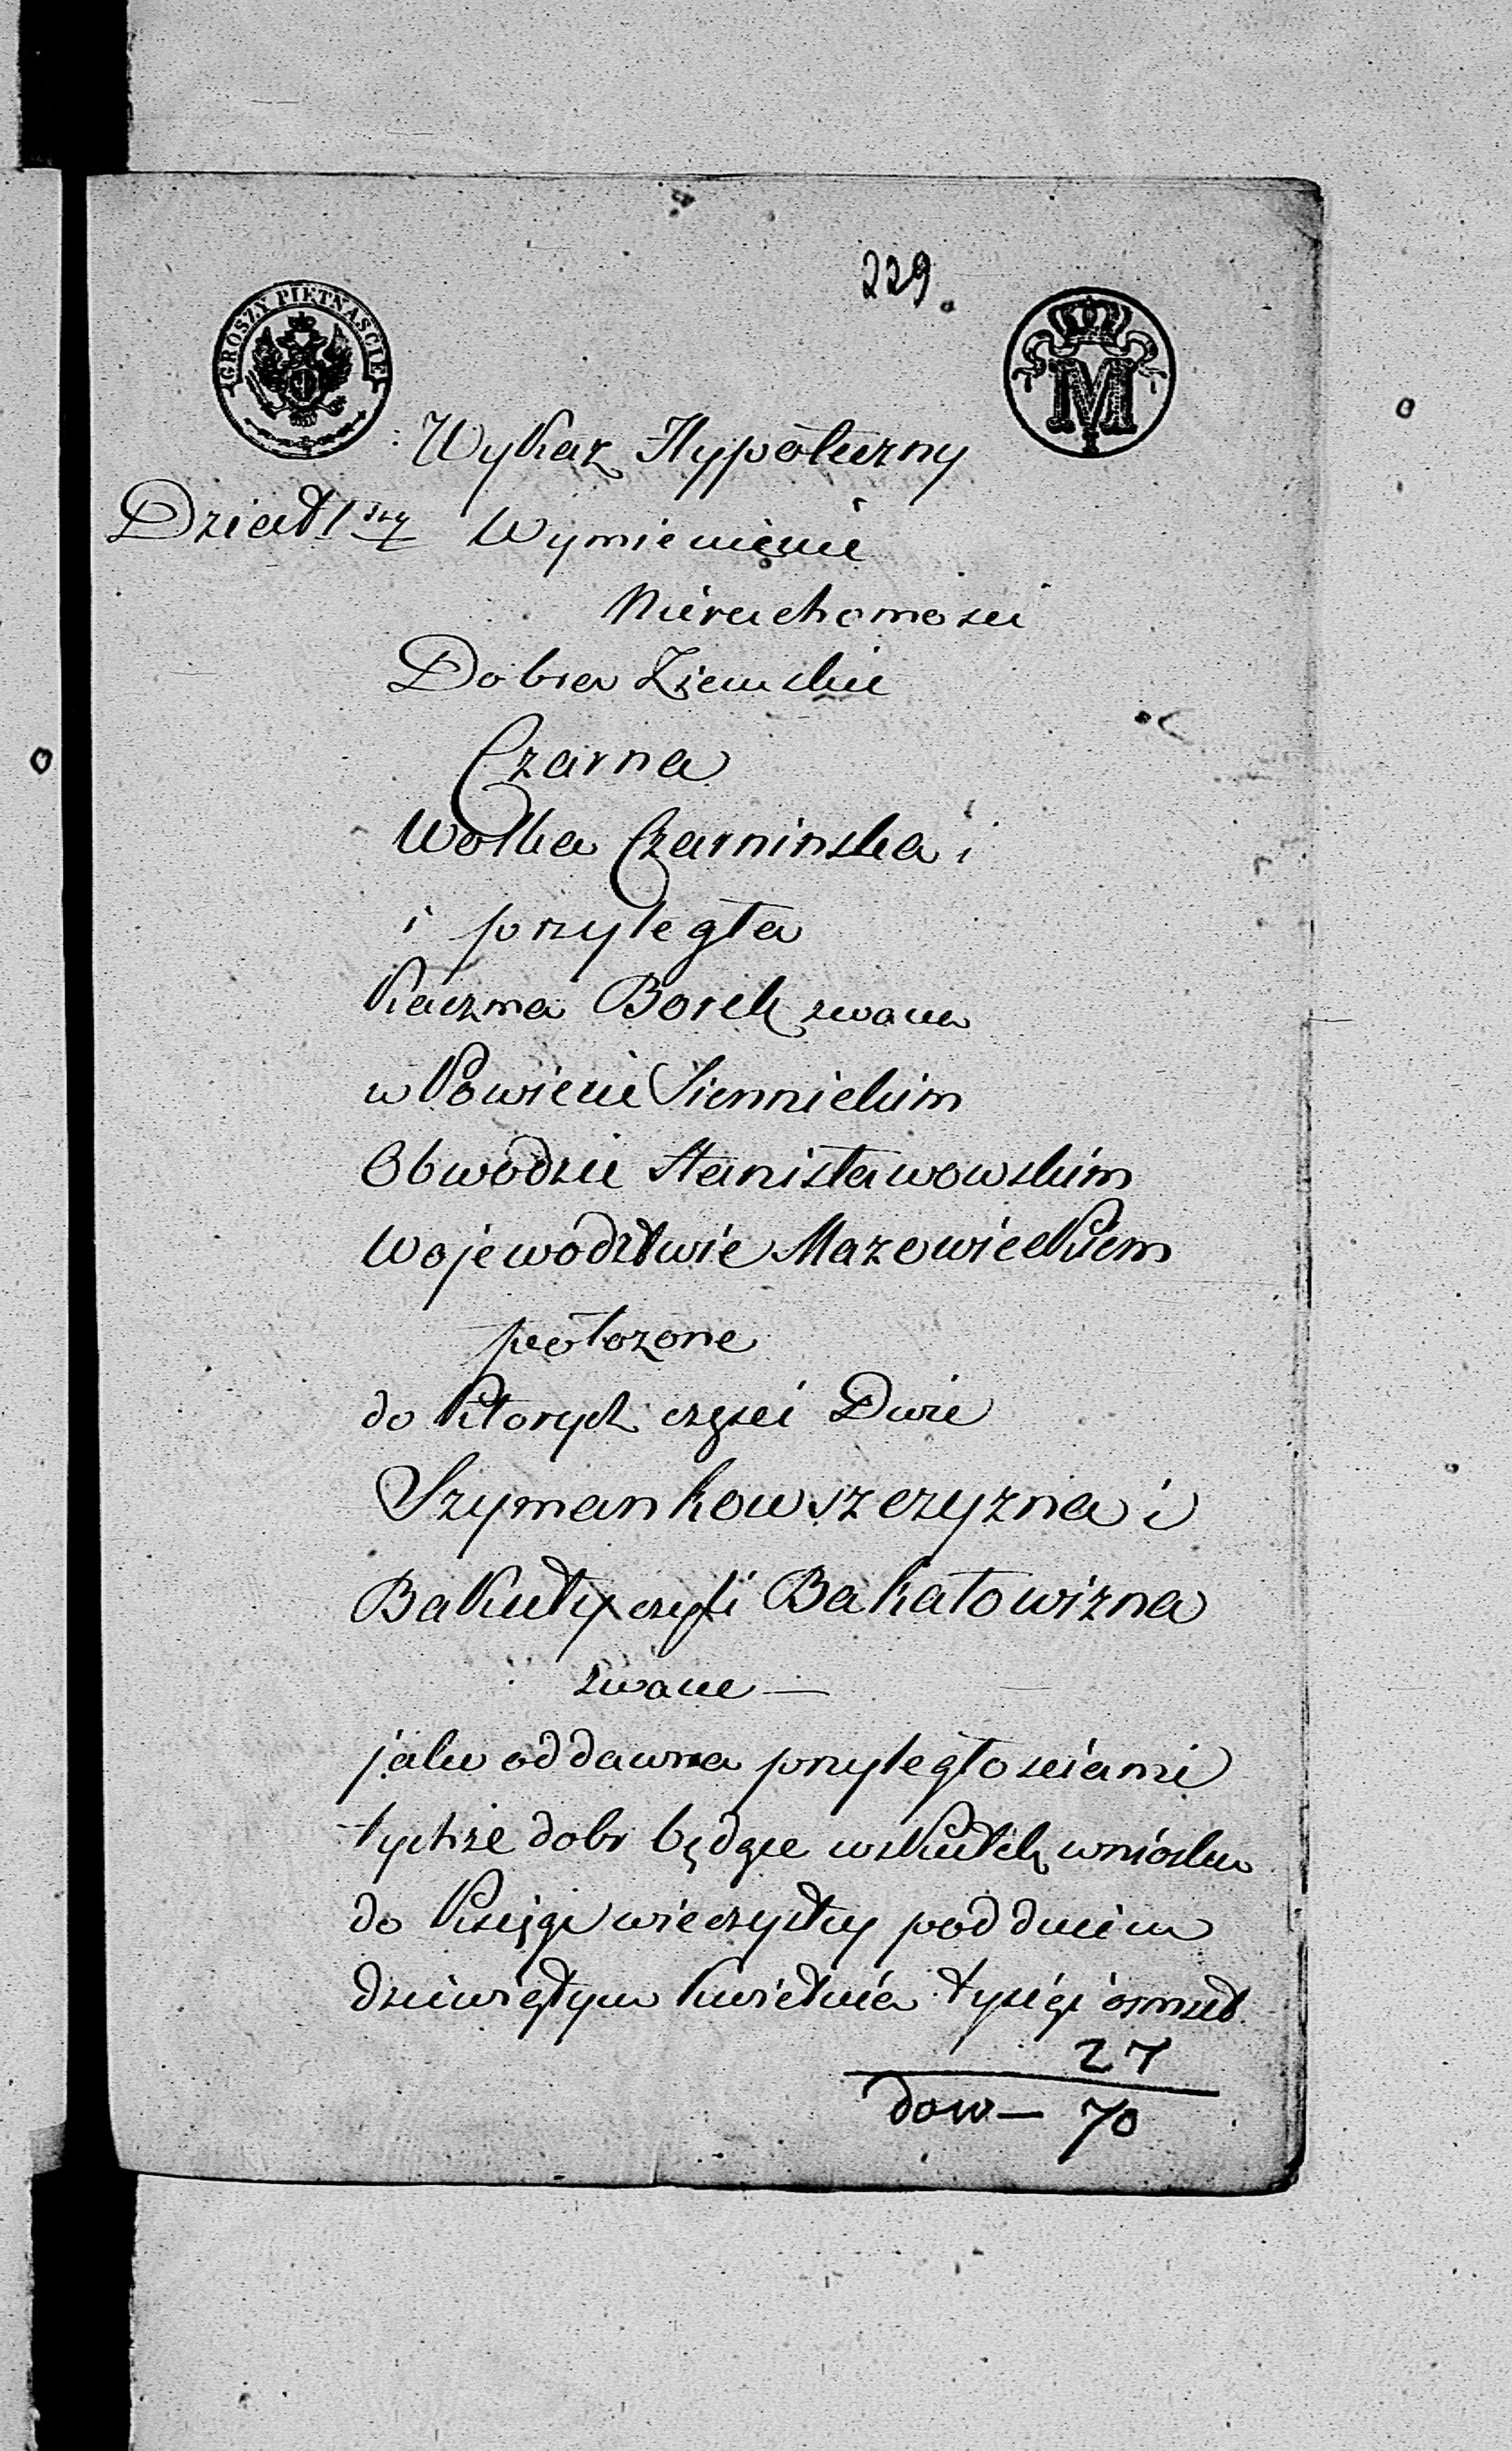 229.
GROSZY PIĘTNAŚCIE
M
Wykaz Hypoteczny
Dział 1szy Wymienienie
Nieruchomości
Dobra Ziemskie
Czarna
Wolka Czarninska i
i przyległa
Karzma Borek zwana
w Powiecie Siennickim
Obwodzie Stanisławowskim
Województwie Mazowieckiem
położone
do ktorych części Dwie
Szymankowszczyzna i
Bakuły czyli Bakałowizna
zwane —
jako oddawna przyległościami
tychże dobr będące wskutek wniosku
do Księgi wieczystey pod dniem
dziewiątym Kwietnia tysiąc ośmset
27
dow — 70